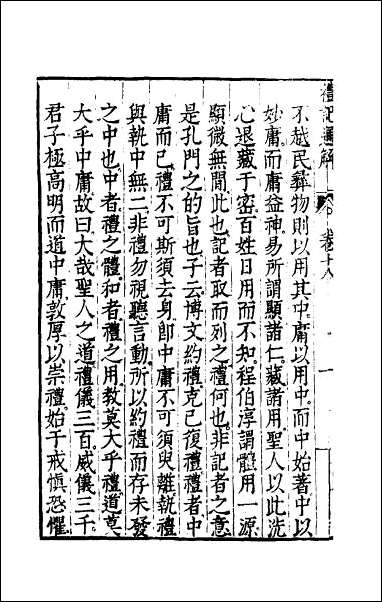 禮記通解 卷十八 一
不越民彝物則以用其中庸以用中而中始著中以
妙庸而庸益神易所謂顯諸仁藏諸用聖人以此洗
心退藏于密百姓日用而不知程伯淳謂體用一源
顯微無間此也記者取而列之禮何也非記者之意
是孔門之的旨也子云博文約禮克己復禮禮者中
庸而已禮不可斯須去身卽中庸不可須臾離執禮
與執中無二非禮勿視聽言動所以約禮而存未發
之中也中者禮之體和者禮之用教莫大乎禮道莫
大乎中庸故曰大哉聖人之道禮儀三百威儀三千
君子極高明而道中庸敦厚以崇禮始于戒慎恐懼